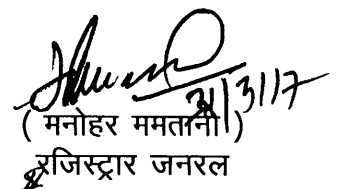 31/3/17
( मनोहर ममतानी )
रजिस्ट्रार जनरल